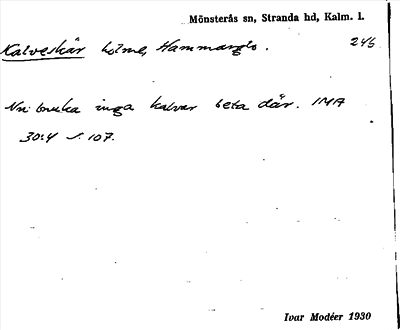 Mönsterås sn, Stranda hd, Kalm. l.
Kalveskär holme, Hammarglo. 246
Nu bruka inga kalvar beta där. IMA
30:4 s. 107.
Ivar Modéer 1930